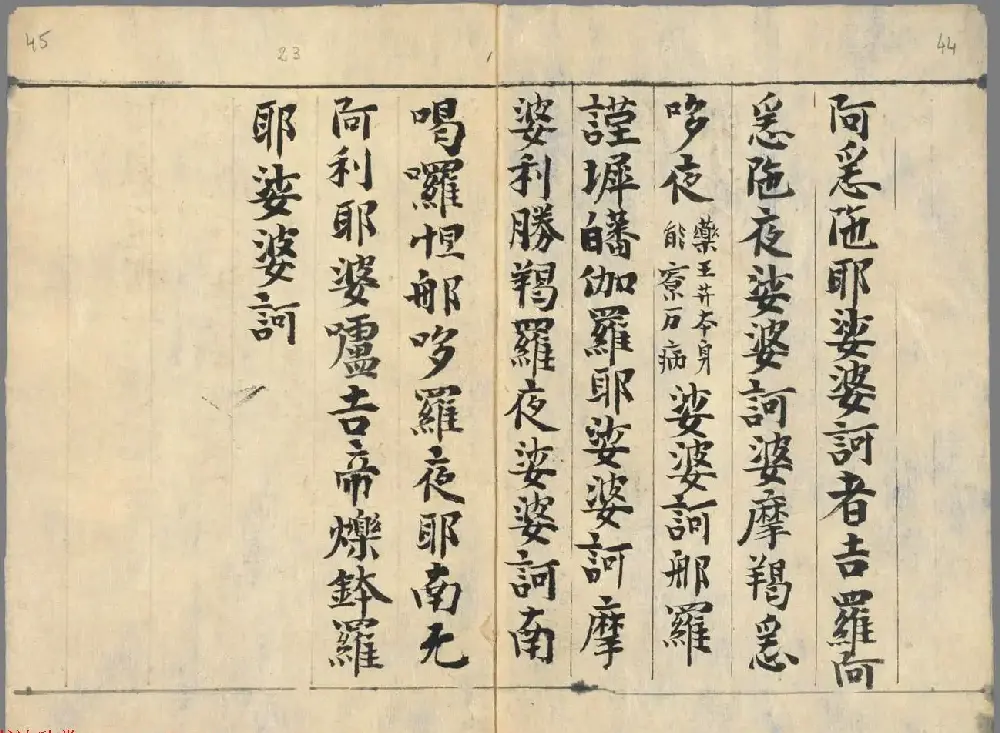 44
阿悉陁耶娑婆訶者吉羅阿
悉陁夜娑婆訶婆摩羯悉
哆夜
藥王𦬇本身
能寮万病
娑婆訶那羅
謹墀皤伽羅耶娑婆訶摩
婆利勝羯羅夜娑婆訶南
喝囉怛那哆羅夜耶南无
阿利耶婆嚧吉帝爍鉢羅
耶娑婆訶
23
45